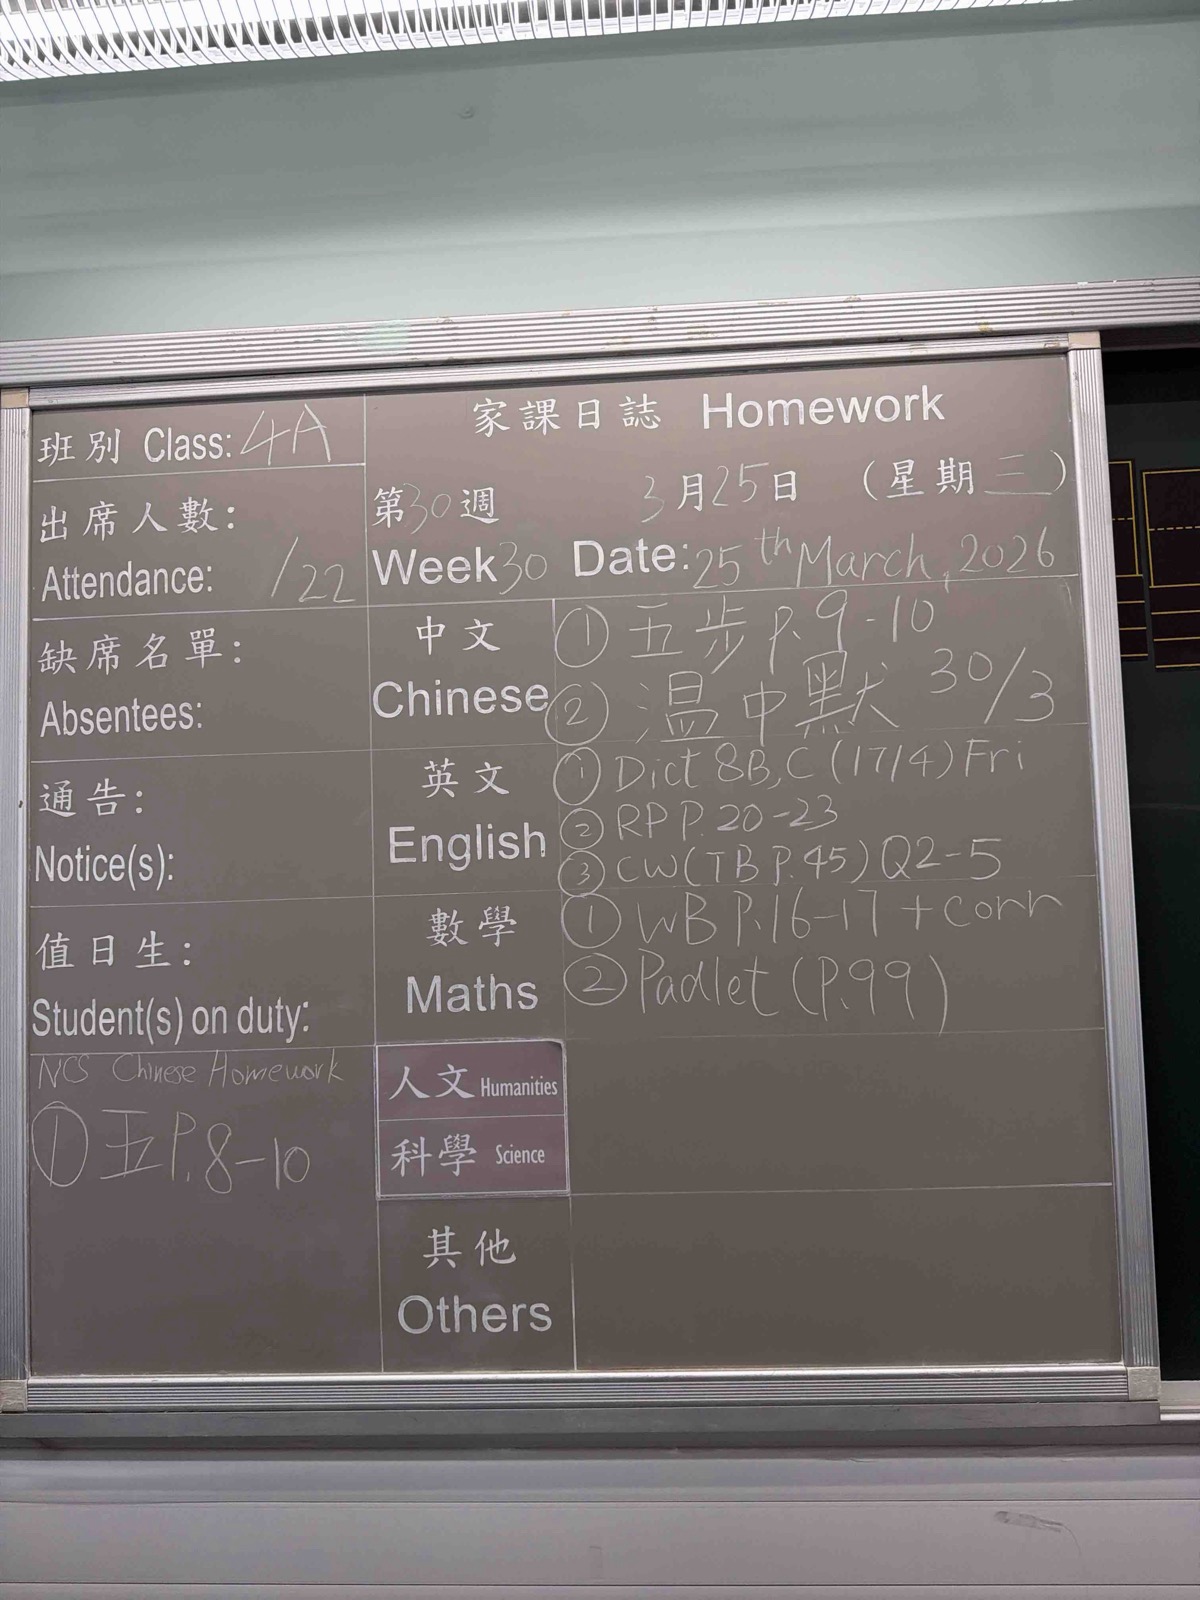 班別 Class: 4A
出席人數:
Attendance: /22
缺席名單:
Absentees:
通告:
Notice(s):
值日生:
Student(s) on duty:
NCS Chinese Homework
① 五 P.8-10
家課日誌 Homework
第30週 3月25日 (星期三)
Week 30 Date: 25th March, 2026
中文
Chinese
① 五步 p.9-10
② 溫中默 30/3
英文
English
① Dict 8B,C (17/4) Fri
② RP P.20-23
③ CW (TB P.45) Q2-5
數學
Maths
① WB P.16-17 + corr
② Padlet (P.99)
人文 Humanities
科學 Science
其他
Others